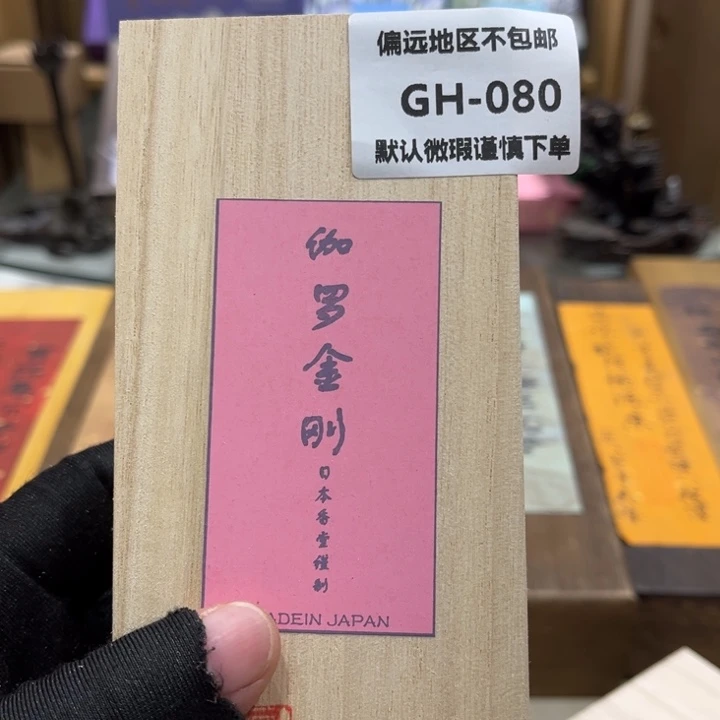 偏远地区不包邮
GH-080
默认微瑕谨慎下单
伽罗金刚
日本香堂谨制
ADEIN JAPAN